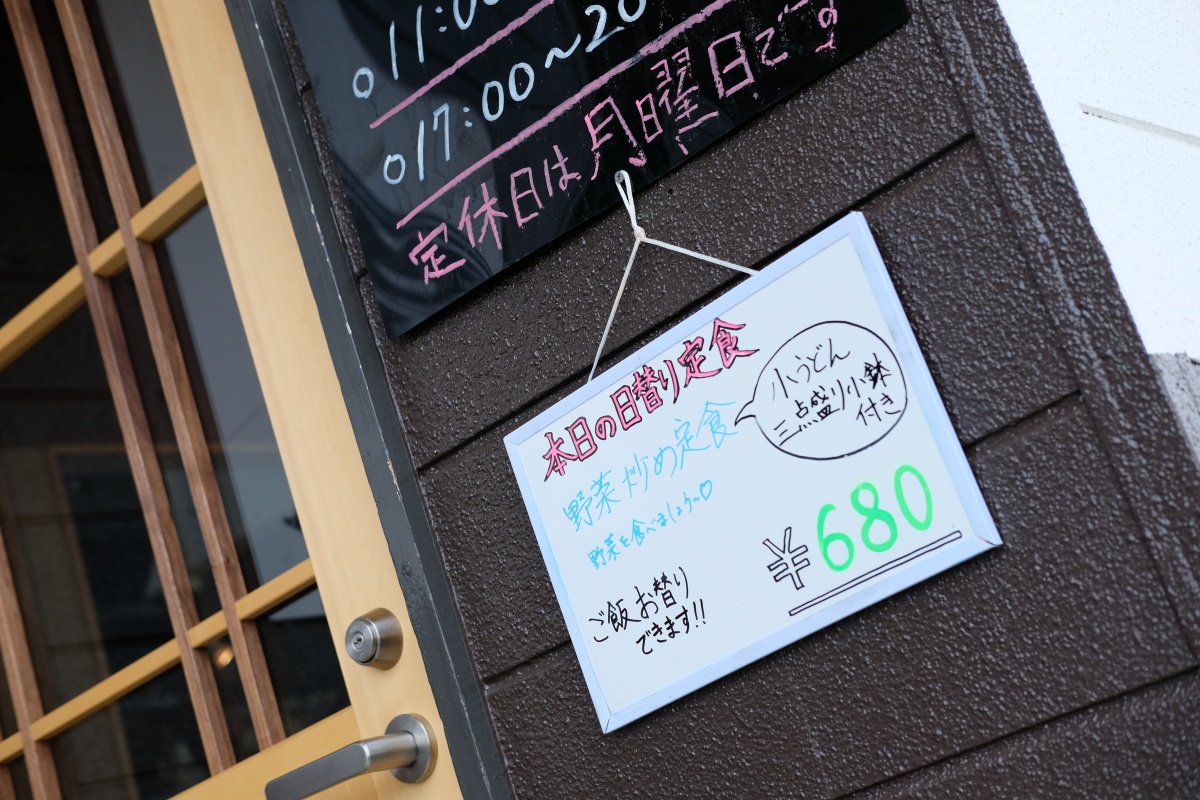 ○11:00
○17:00～20
定休日は月曜日です
本日の日替り定食
野菜炒め定食
野菜を食べましょう～♡
小うどん
三点盛り小鉢
付き
¥680
ご飯お替り
できます!!